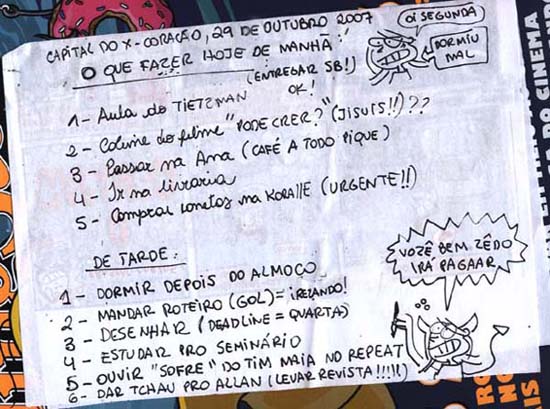 CAPITAL DO X-CORAÇÃO, 29 DE OUTUBRO 2007
O QUE FAZER HOJE DE MANHÃ:
(ENTREGAR SB!)
OK!
1- Aula do TIETZMAN
2- Coluna do filme "PODE CRER?" (JISUIS!!)??
3- Passar na Ana (CAFÉ A TODO PIQUE)
4- Ir na livraria
5- Comprar na KORALLE (URGENTE!!)
OI SEGUNDA
DORMIU
MAL
DE TARDE:
1- DORMIR DEPOIS DO ALMOÇO
2- MANDAR ROTEIRO (GOL) = IRELAND!
3- DESENHAR (DEADLINE = QUARTA)
4- ESTUDAR PRO SEMINÁRIO
5- OUVIR "SOFRE" DO TIM MAIA NO REPEAT
6- DAR TCHAU PRO ALLAN (LEVAR REVISTA!!!!!)
VOZÊ BEM ZÊDO
IRÁ PAGAAR
CINEMA
DO CINEMA